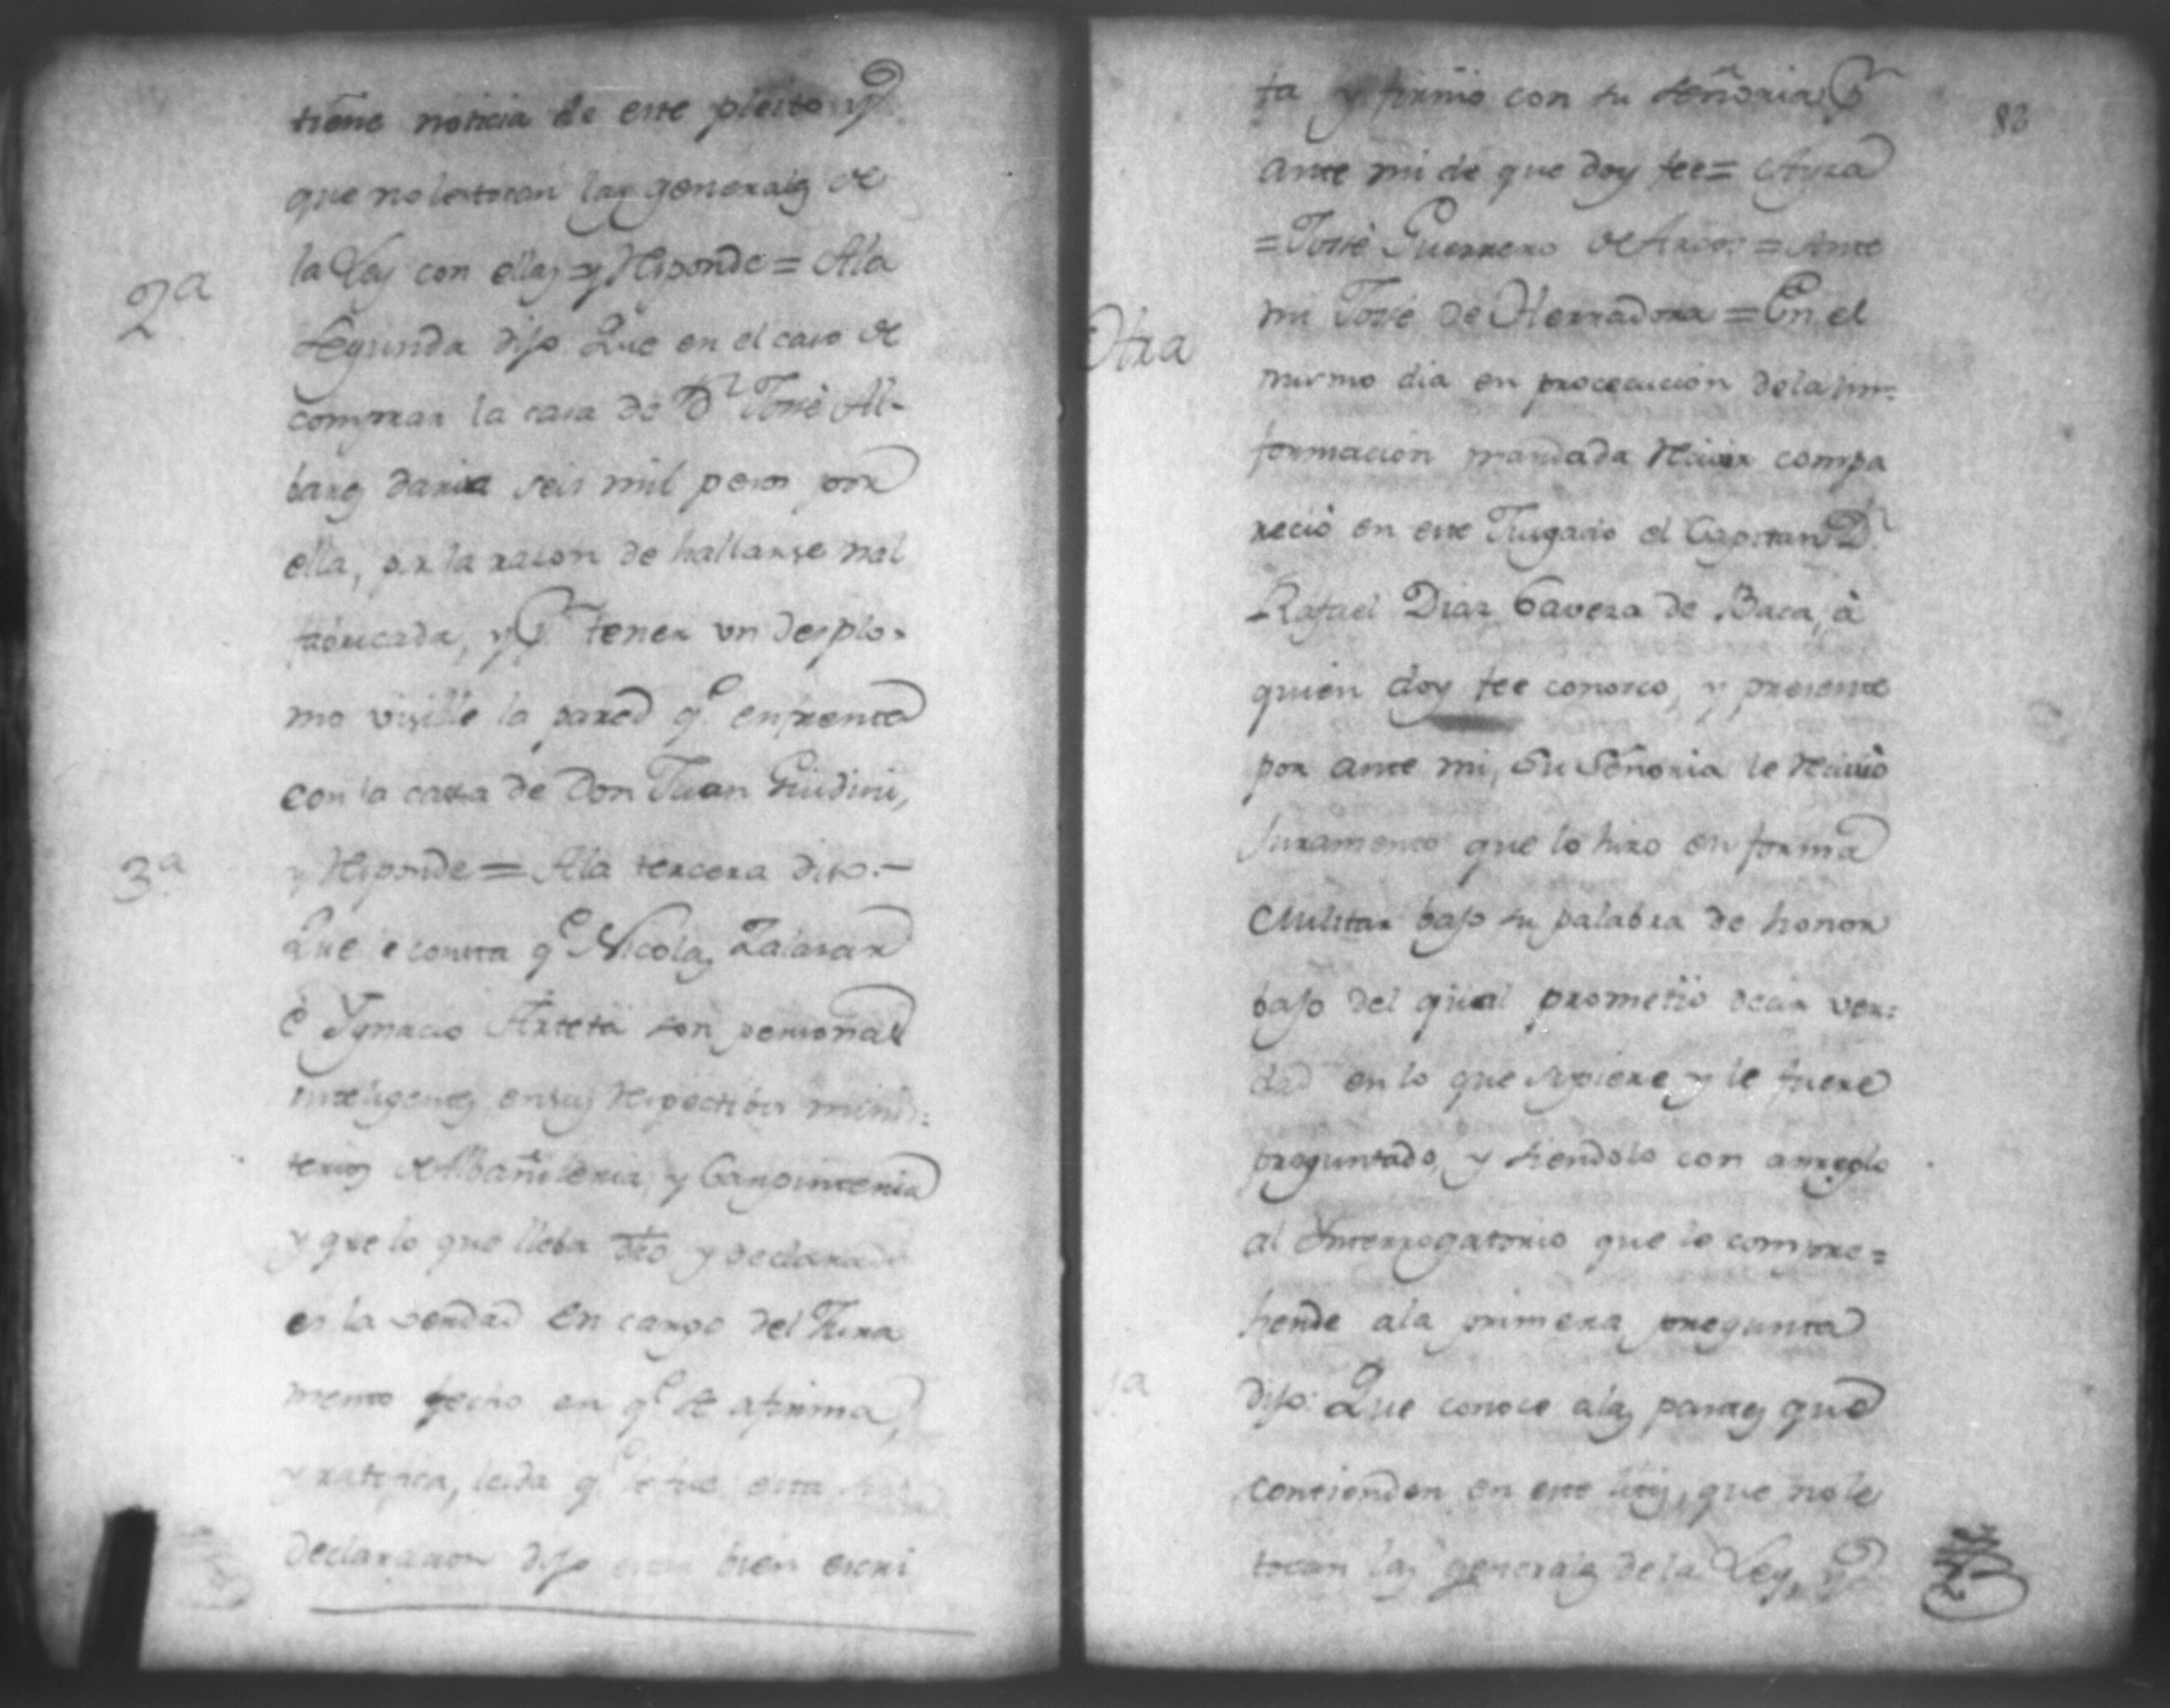 tiene noticia de este pleito y
que no les tocan las generales de
la Ley con ellas y Responde = Ala
2ª
segunda dijo Que en el caso de
comprar la casa de Dn José Al-
bares daria seis mil pesos por
ella, por la rason de hallarse mal
fabricada, y Pr tener un desplo-
mo visible la pared qe enfrenta
con la casa de Don Juan Giudini,
3ª
y Responde = Ala tercera dijo.-
Que le consta qe Nicolas Zalasar
è Ygnacio Arteta son personas
inteligentes en sus Respectivos minis=
terios de Albañileria, y Carpinteria
y que lo que lleba dho y declarado
es la verdad en cargo del Jura
mento fecho en qe se afirma,
y ratifica, leida qe le fue esta
declaracion dijo estar bien escri
ta y firmò con su señoria Pr
83
ante mi de que doy fee =
= Josè Guerrero de = Ante
mi José de Herradora = En el
Otra
mismo dia en prosecucion dela in=
formacion mandada Recivir compa
reciò en este Jusgado el Capitan Dn
Rafael Dias Tavera de Baca, à
quien doy fee conosco, y presente
por ante mi, Su Señoria le Recivio
Juramento que lo hizo en forma
Militar bajo su palabra de honor
bajo del qual prometiò decir ver=
dad en lo que supiere y le fuere
preguntado, y siendolo con arreglo
al Ynterrogatorio que lo compre=
hende ala primera pregunta
1a
dijo: Que conoce alas partes que
contienden en este litis, que no le
tocan las generales dela Ley, y